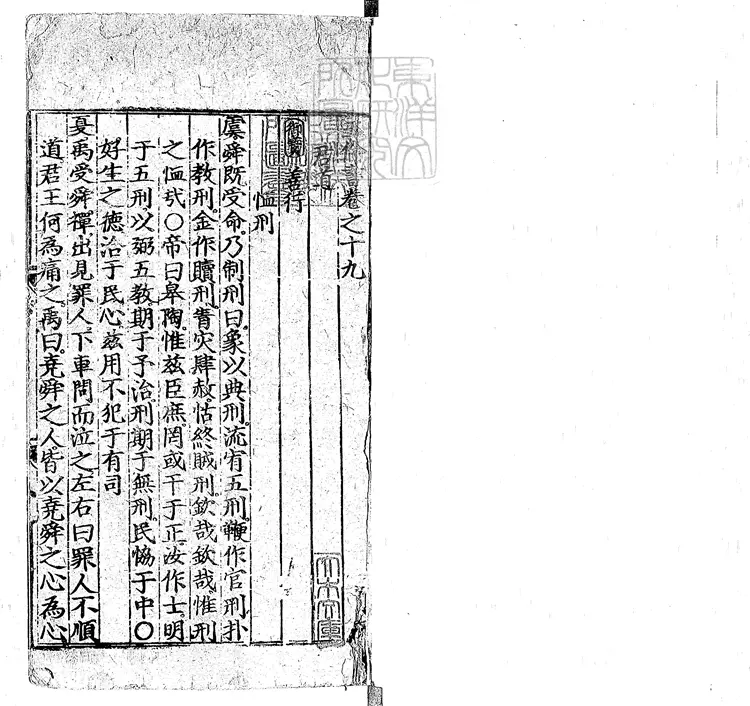 卷之十九
君道
善行
恤刑
虞舜既受命乃制刑曰象以典刑流宥五刑鞭作官刑扑
作教刑金作贖刑眚灾肆赦怙終賊刑欽哉欽哉惟刑
之恤㢤〇帝曰皋陶惟茲臣庶罔或干于正汝作士明
于五刑以弼五教期于予治刑期于無刑民恊于中〇
好生之德洽于民心茲用不犯于有司
夏禹受舜禪出見罪人下車問而泣之左右曰罪人不順
道君王何為痛之禹曰堯舜之人皆以堯舜之心為心